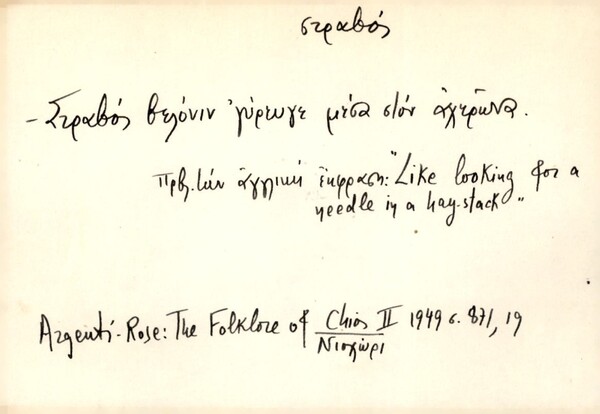 στραβός
- Στραβός βελόνιν 'γύρευγε μέσα στόν ἀχερῶνα.
πρβ. τήν ἀγγλική ἔκφραση: "Like looking for a
needle in a hay-stack"
Argenti-Rose: The Folklore of Chios II 1949 σ. 871, 19
Νιοχώρι